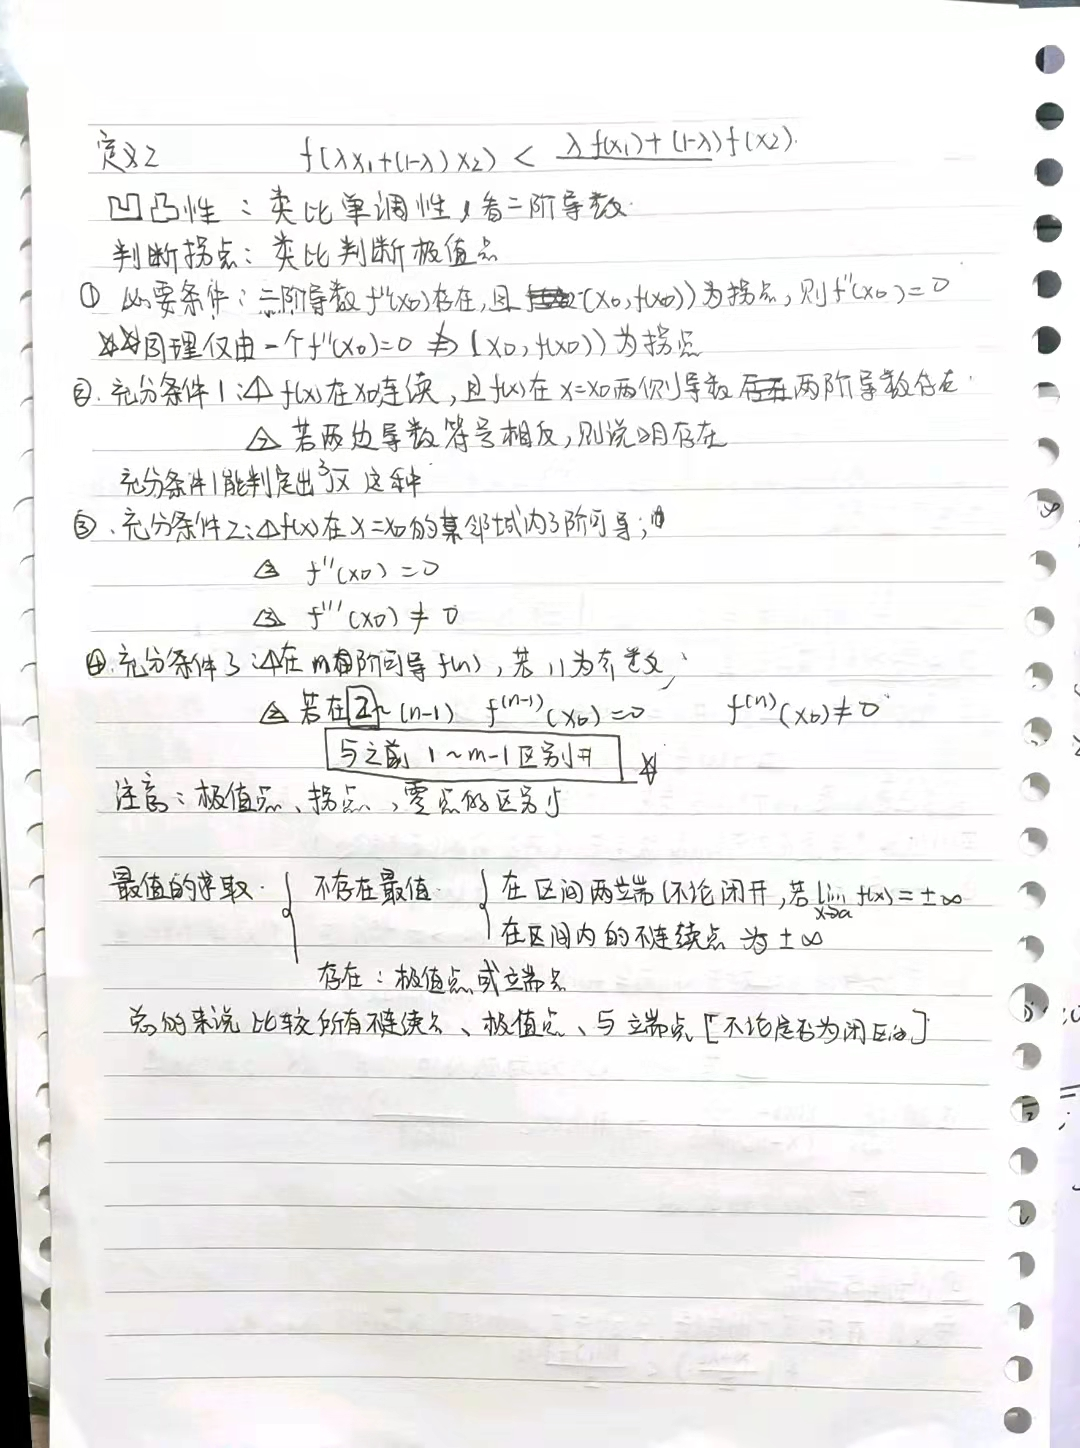 定义2 f(λx₁+(1-λ)x₂) < λf(x₁)+(1-λ)f(x₂).
凹凸性：类比单调性，看二阶导数.
判断拐点：类比判断极值点
① 必要条件：二阶导数f''(x₀)存在,且(x₀,f(x₀))为拐点,则f''(x₀)=0
同理仅由一个f''(x₀)=0 ⇏ (x₀,f(x₀))为拐点
②. 充分条件1:△1 f(x)在x₀连续,且f(x)在x=x₀两侧导数两阶导数存在.
△2 若两边导数符号相反,则说明存在
充分条件1能判定出³√x 这种
③. 充分条件2:△1 f(x)在x=x₀的某邻域内3阶可导;
△2 f''(x₀)=0
△3 f'''(x₀)≠0
④.充分条件3:△1在m阶可导f(n),若n为奇数;
△2 若在2~(n-1) f⁽ⁿ⁻¹⁾(x₀)=0 f⁽ⁿ⁾(x₀)≠0
与之前 1~m-1区别开
注意：极值点、拐点、零点的区别
最值的求取.
不存在最值. 在区间两端(不论闭开,若lim f(x)=±∞
x→a
在区间内的不连续点为±∞
存在：极值点或端点
总的来说比较所有不连续点、极值点、与端点[不论是否为闭区间]